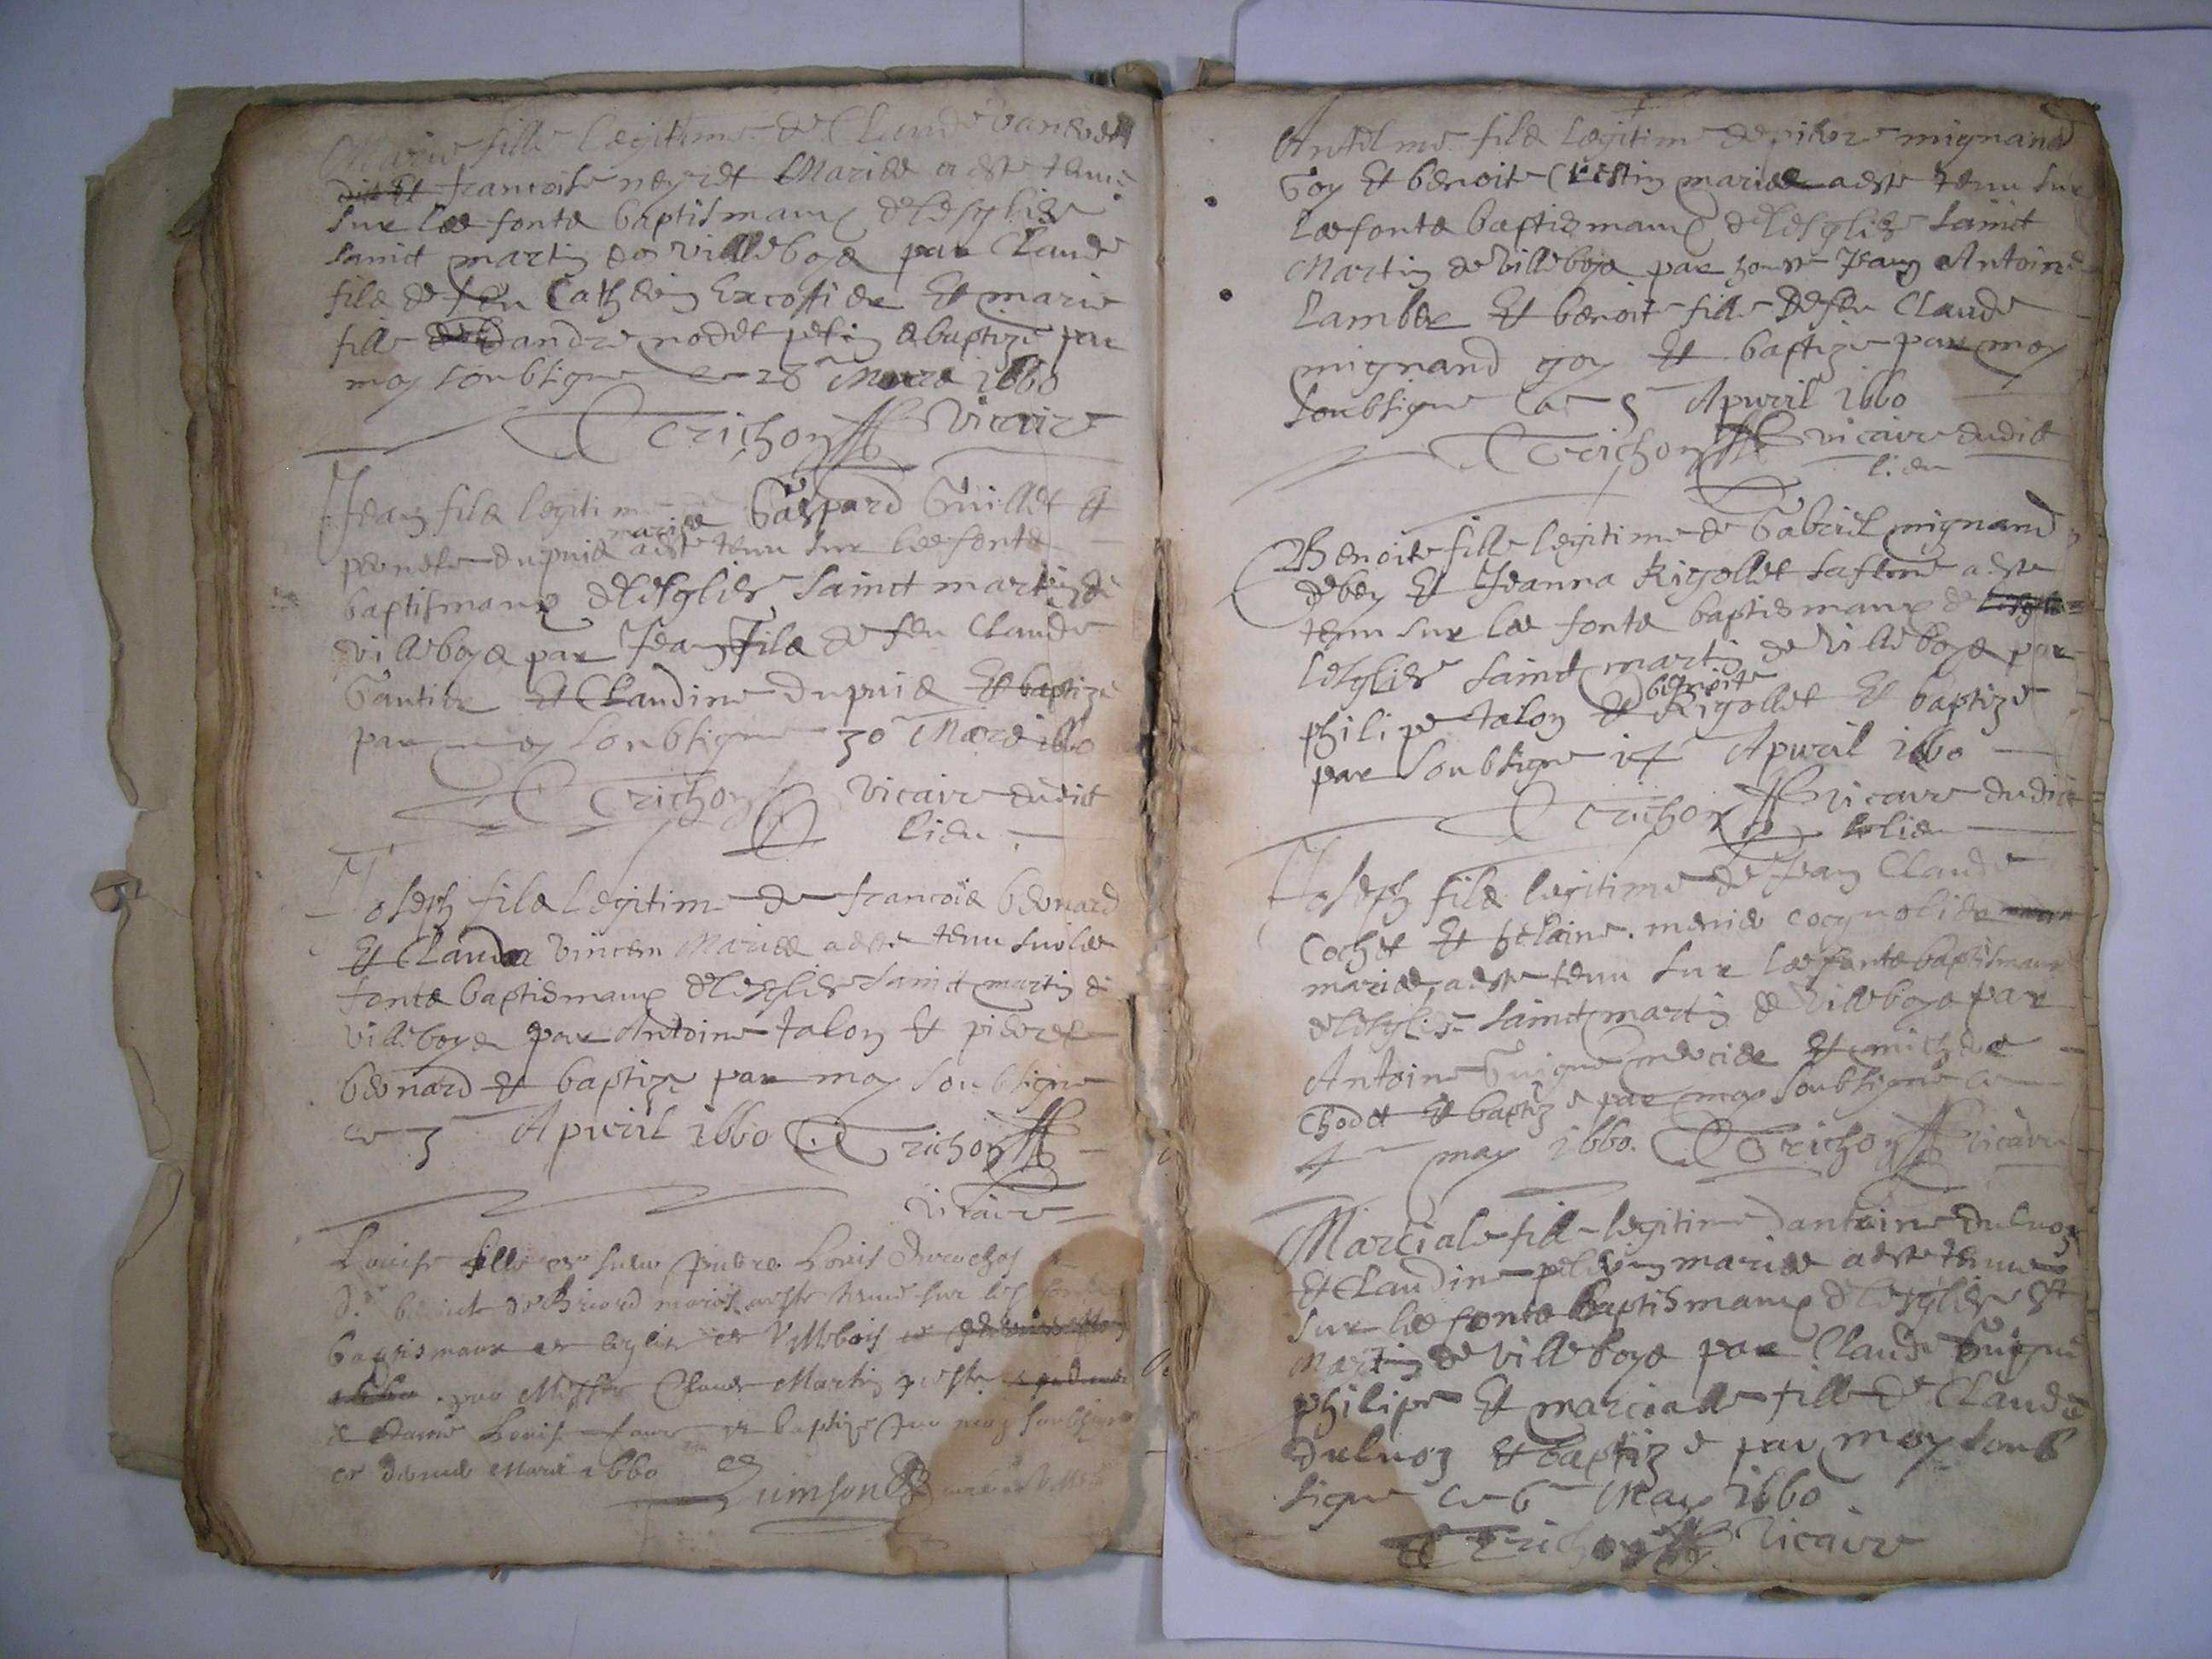 Marie fille legitime de Claude
francoise neyret Mariés a este tenue
sur les fonts baptismaux de lesglise
sainct martin de villeboys par Claude
fils de feu Cathelin Excoffier Et marie
fille dandre nodet petin & baptizé par
moy soubsigne ce 28 Mars 1660
Trichon Vicaire
Jean fils legitime Gaspard Guillet Et
mariés
pernete dupuis a este tenu sur les fonts
baptismaux de lesglise sainct martin de
villeboys par Jean fils de feu Claude
Gautier Et Claudine dupuis Et baptizé
par moy soubsigne 30 Mars 1660
Trichon Vicaire dudict
lieu
Joseph fils legitime de francois bernard
Et Clauda vincen Mariés a este tenu sur les
fonts baptismaux de lesglise sainct martin de
villeboys par Antoine talon Et pierre
bernard Et baptize par moy soubsigne
ce 3 Apvril 1660 Trichon
vicaire
Louise fille de sieur Louis
de Briord mariés a este tenue sur les fonts
baptismaux de leglise de Villebois
par Messire Claude Martin prestre
& dame Louise et baptize par moy soubsigne
ce Mars 1660
Antelme fils legitime de pierre mignand
Goy Et benoite Crestin mariés a este tenu sur
les fonts baptismaux de lesglise sainct
Martin de Villeboys par Jean Antoine
Lamber Et benoite fille de feu Claude
mignand goy Et baptize par moy
soubsigne ce 5 Apvril 1660
Trichon vicaire dudict
lieu
Benoite fille legitime de Gabriel mignand
debey Et Jeanna Rigollet safeme a este
tenu sur les fonts baptismaux de
lesglise sainct martin de Villeboys par
benoite
philipe talon Et Rigollet Et baptize
par soubsigne 14 Apvril 1660
Trichon vicaire dudict
lieu
Joseph fils legitime de Jean Claude
Cochet Et helaine menie cocynolier
mariés a este tenu sur les fonts baptismaux
de lesglise sainct martin de Villeboys par
Antoine Guigue mercier Et
chodet Et baptize par moy soubsigne ce
4 may 1660. Trichon Vicaire
Marciale fille legitime dantoine duluoz
Et Claudine mariés a este tenue
sur les fonts baptismaux de lesglise st
Martin de villeboys par Claude Guigue
philipe Et marcialle fille de Claude
duluoz Et baptize par moy soub
signe ce 6 May 1660.
Trichon Vicaire